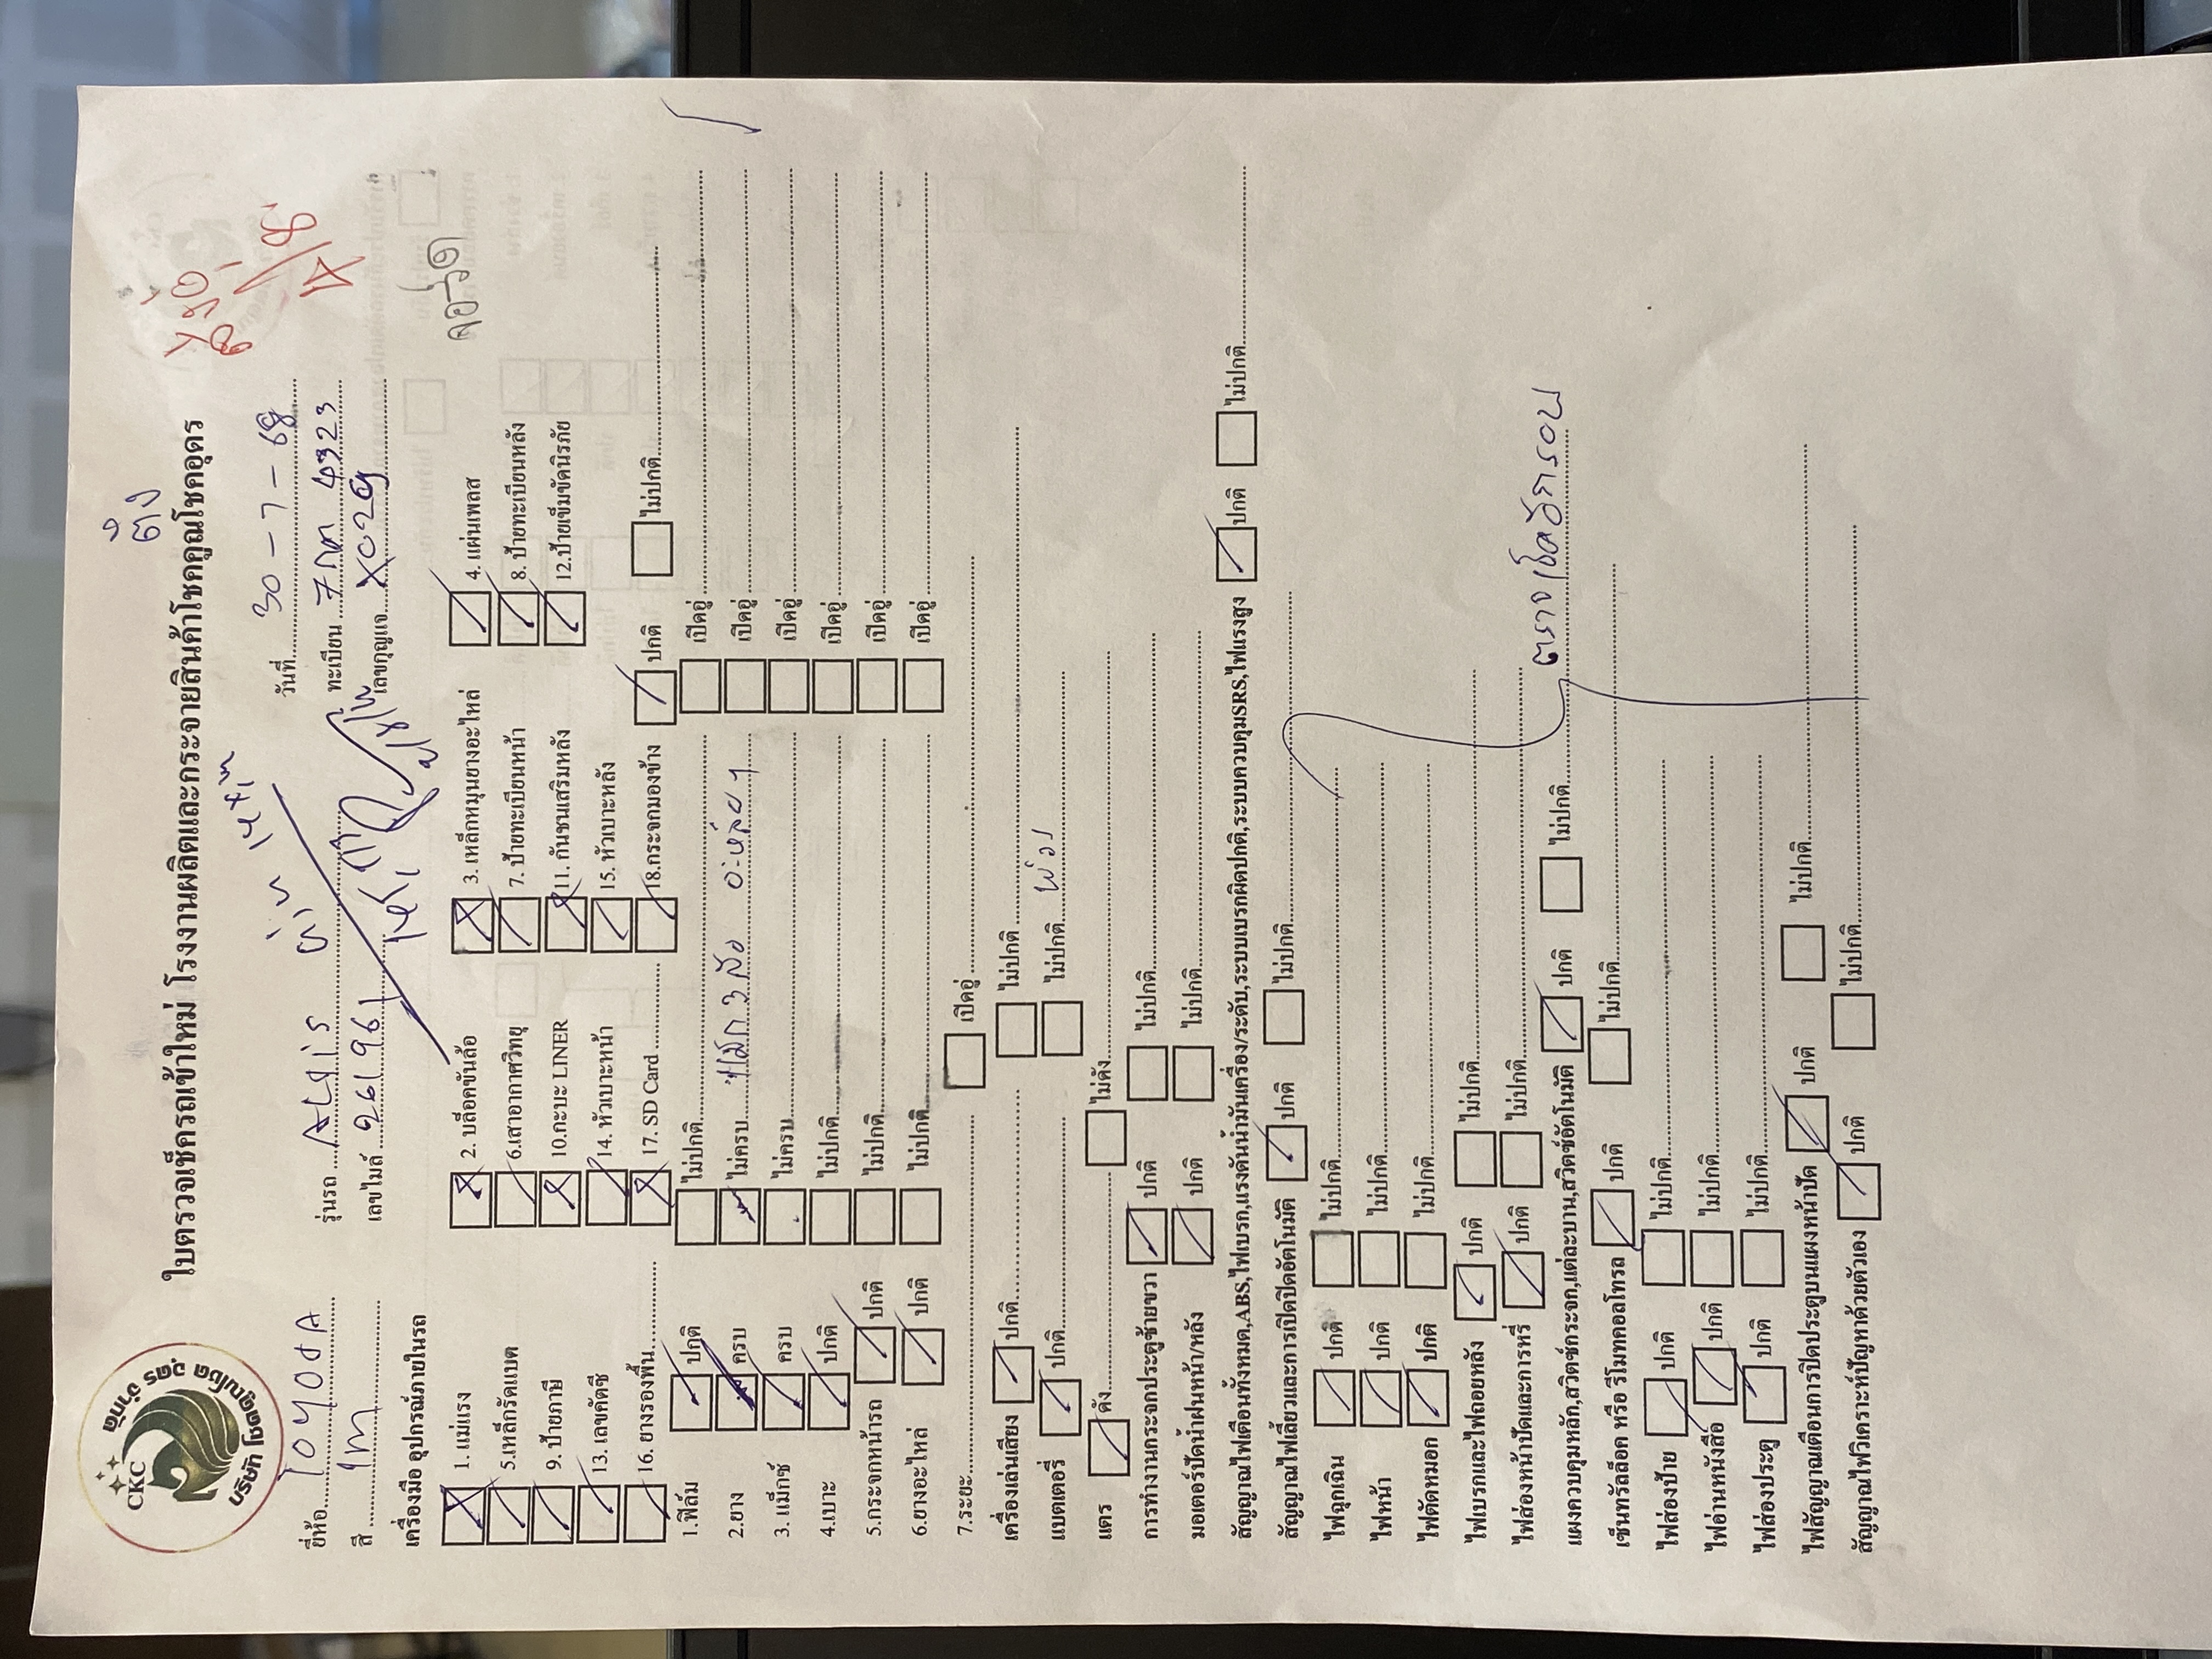 CKC
บริษัท โชคคูณโชค อุดร จำกัด
ใบตรวจเช็ครถเข้าใหม่ โรงงานผลิตและกระจายสินค้าโชคคูณโชคอุดร
ยี่ห้อ TOYOTA รุ่นรถ ALTIS วันที่ 30-7-68
สี เทา เลขไมล์ 261961 ทะเบียน 7กต 4323
เลขกุญแจ X029
เครื่องมือ อุปกรณ์ภายในรถ
1. แม่แรง 2. บล็อคขันล้อ 3. เหล็กหมุนยางอะไหล่ 4. แผ่นเพลส
5.เหล็กรัดแบต 6.เสาอากาศวิทยุ 7. ป้ายทะเบียนหน้า 8. ป้ายทะเบียนหลัง
9. ป้ายภาษี 10.กะบะ LINER 11. กันชนเสริมหลัง 12.ป้ายเข็มขัดนิรภัย
13. เลขคัดซี 14. หัวเบาะหน้า 15. หัวเบาะหลัง
16. ยางรองพื้น 17. SD Card 18.กระจกมองข้าง ปกติ ไม่ปกติ
1.ฟิล์ม ปกติ ไม่ปกติ เปิดอู่
2.ยาง ครบ ไม่ครบ แม็ก 3 ล้อ อะหล่ำ 1 เปิดอู่
3. แม็กซ์ ครบ ไม่ครบ เปิดอู่
4.เบาะ ปกติ ไม่ปกติ เปิดอู่
5.กระจกหน้ารถ ปกติ ไม่ปกติ เปิดอู่
6.ยางอะไหล่ ปกติ ไม่ปกติ เปิดอู่
7.ระยะ เปิดอู่
เครื่องเล่นเสียง ปกติ ไม่ปกติ
แบตเตอรี่ ปกติ ไม่ปกติ พ่วง
แตร ดัง ไม่ดัง
การทำงานกระจกประตูซ้ายขวา ปกติ ไม่ปกติ
มอเตอร์ปัดน้ำฝนหน้า/หลัง ปกติ ไม่ปกติ
สัญญาณไฟเตือนทั้งหมด,ABS,ไฟเบรก,แรงดันน้ำมันเครื่อง/ระดับ,ระบบเบรกผิดปกติ,ระบบควบคุมSRS,ไฟแรงสูง ปกติ ไม่ปกติ
สัญญาณไฟเลี้ยวและการเปิดปิดอัตโนมัติ ปกติ ไม่ปกติ
ไฟฉุกเฉิน ปกติ ไม่ปกติ
ไฟหน้า ปกติ ไม่ปกติ
ไฟตัดหมอก ปกติ ไม่ปกติ
ไฟเบรกและไฟถอยหลัง ปกติ ไม่ปกติ
ไฟส่องหน้าปัดและการหรี่ ปกติ ไม่ปกติ
แผงควบคุมหลัก,สวิตซ์กระจก,แต่ละบาน,สวิตซ์อัตโนมัติ ปกติ ไม่ปกติ
เซ็นทรัลล็อค หรือ รีโมทคอลโทรล ปกติ ไม่ปกติ
ไฟส่องป้าย ปกติ ไม่ปกติ
ไฟอ่านหนังสือ ปกติ ไม่ปกติ
ไฟส่องประตู ปกติ ไม่ปกติ
ไฟสัญญาณเตือนการปิดประตูบนแผงหน้าปัด ปกติ ไม่ปกติ
สัญญาณไฟวิเคราะห์ปัญหาด้วยตัวเอง ปกติ ไม่ปกติ